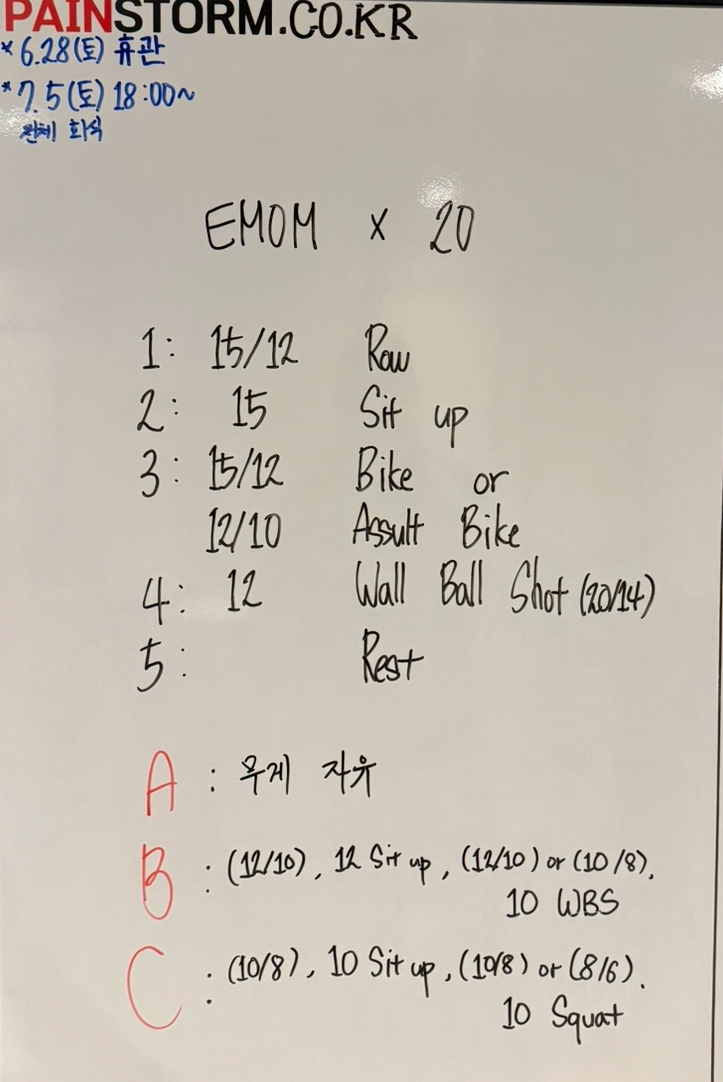 PAINSTORM.CO.KR
* 6.28(토) 휴관
* 7.5(토) 18:00~
전체 회식
EMOM x 20
1: 15/12 Row
2: 15 Sit up
3: 15/12 Bike or
12/10 Assult Bike
4: 12 Wall Ball Shot (20/14)
5: Rest
A : 무게 자유
B : (12/10), 12 Sit up, (12/10) or (10/8),
10 WBS
C : (10/8), 10 Sit up, (10/8) or (8/6).
10 Squat